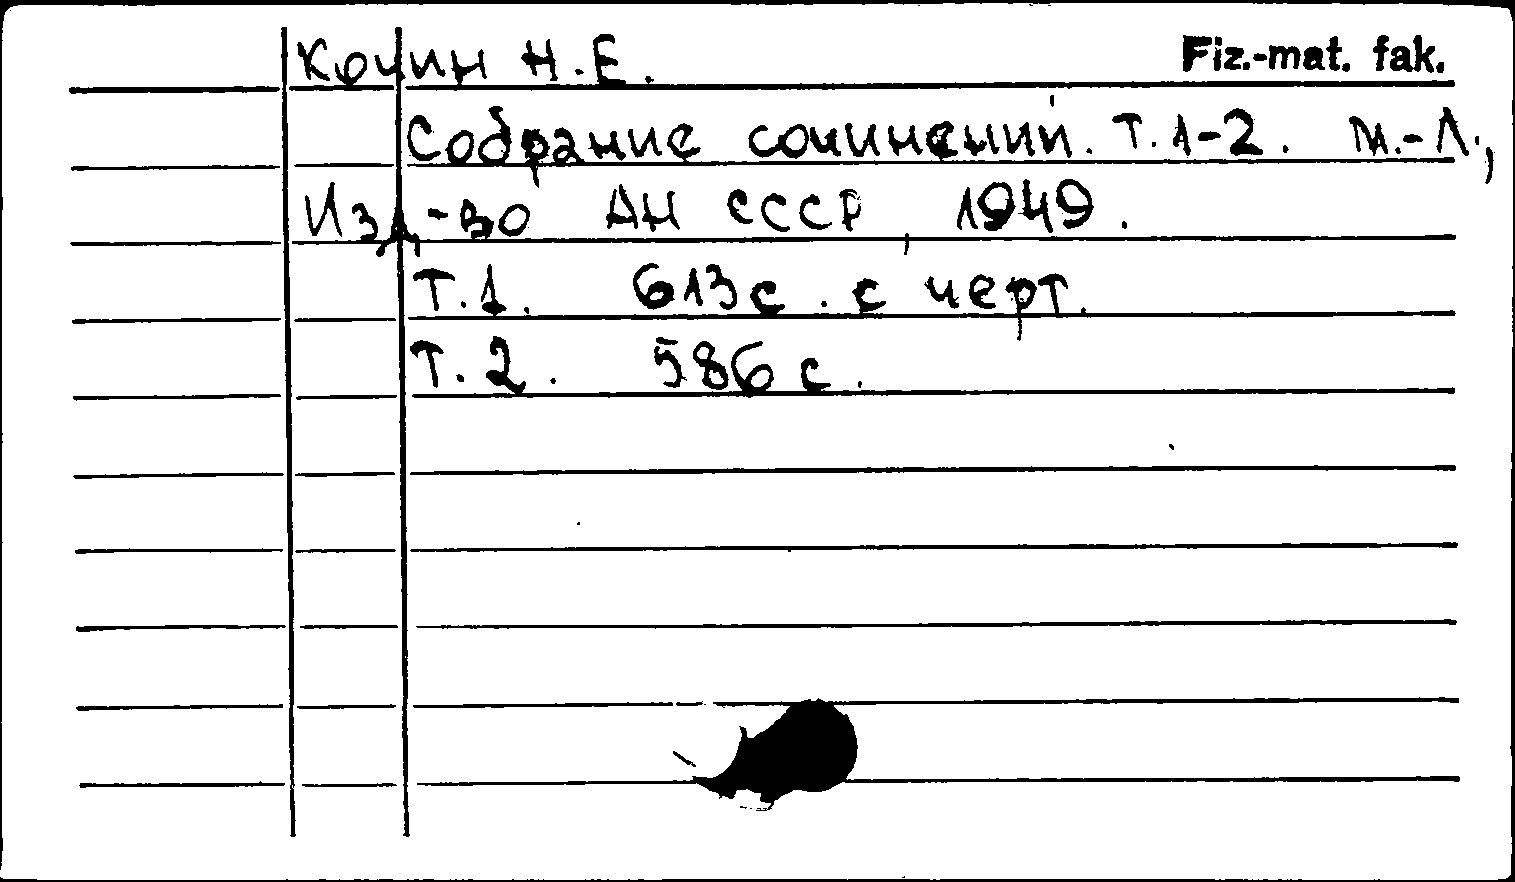 Кочин Н.Е. Fiz.-mat. fak.
Собрание сочинений. Т.1-2. М.-Л.,
Изд-во АН СССР, 1949.
Т.1. 613с. с черт.
Т.2. 586 с.